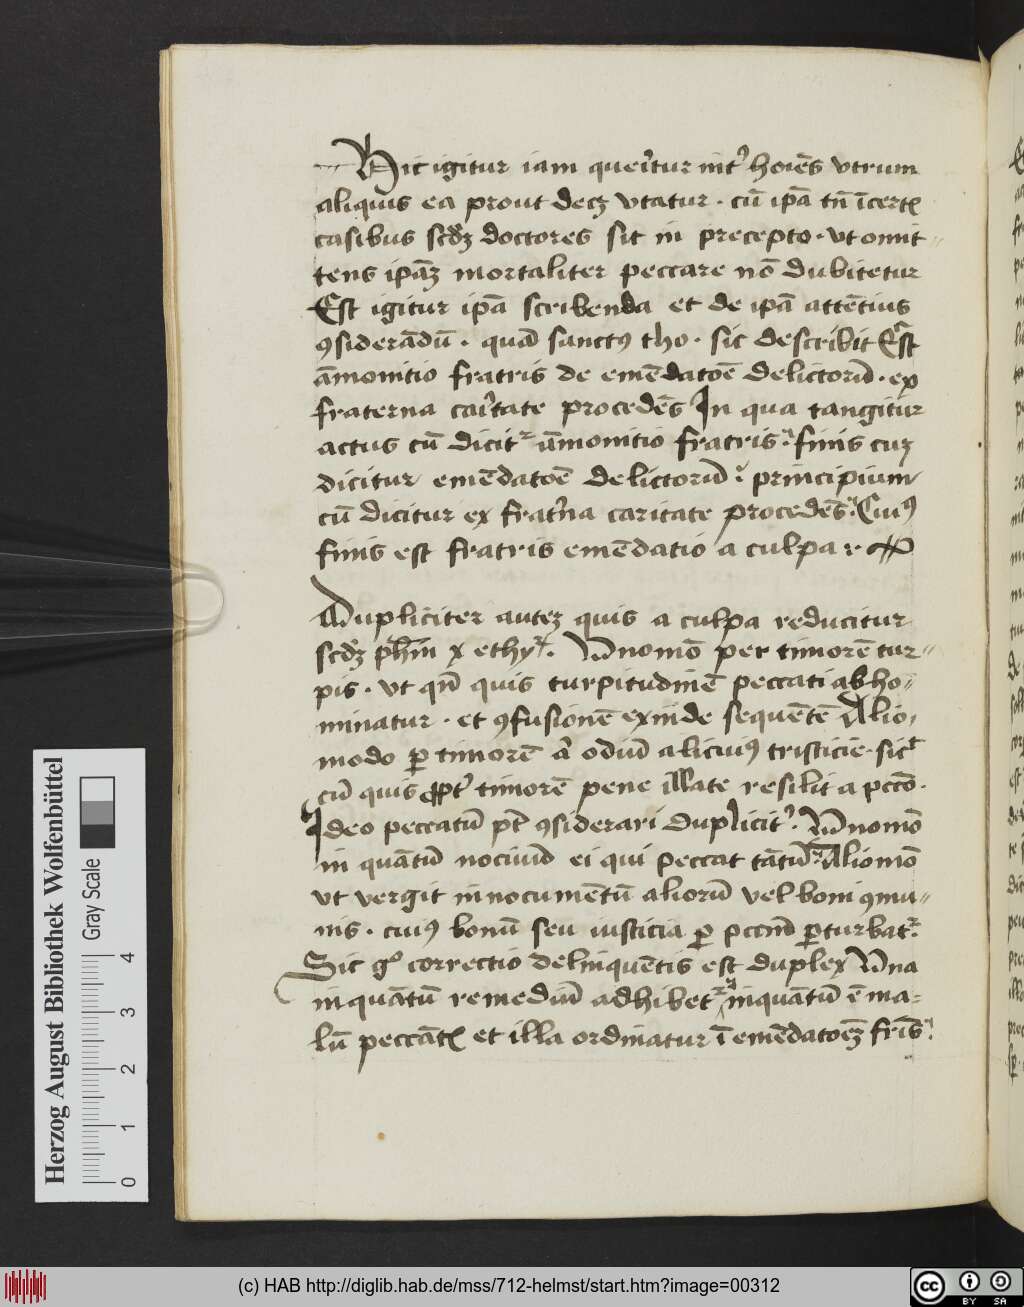 Hic igitur iam querit̾ur int̾ hoīes vtrum
aliquis ea prout decꝫ vtatur · cū ipā tn̄ ī cert
casibus scd̄ꝫ doctores sit in precepto · vt omit„
tens ipāꝫ mortaliter peccare nō dubitetur
Est igitur ipā scribenda et de ipā attētius
ꝯsiderādū · quā sanctꝰ tho · sic describit Est
āmonitio fratris de emēdatoē delictorū · ex
fraterna cari̾tate procedēs In qua tangitur
actus cū dicit̾ āmonitio fratris · finis cuꝫ
dicitur emēdatoē delictorū · principium
cū dicitur ex frat̾na caritate procedēs · Cuiꝰ
finis est fratris emēdatio a culpa
Dupliciter auteꝫ quis a culpa reducitur
scd̄ꝫ ph̄m x ethyͬ · Uno mō per timorē tur„
pis · vt qn̄ quis turpitudinē peccati abho„
minatur · et ꝯfusionē exinde sequētē Alio
modo ꝑ timorē a̾ odiū alicuiꝰ tristicie · sict
cū quis ꝓpt̾ timorē pene illate resilit a pccō ·
Ideo peccatū pt̄ ꝯsiderari duplicit̾ · Uno mō
in quātū nociuū ei qui peccat tātū · Alio mō
vt vergit in nocumētū aliorū vel boni ꝯmu„
nis · cuiꝰ bonū seu iusticia ꝑ pccm̄ ꝑturbat̾ ·
Sic gͦ correctio delinquētis est duplex Una
inquātū remediū adhibet̾ inquātū ē ma„
lū peccāt et illa ordinatur ī emēdatoēꝫ fr̄is
Herzog August Bibliothek Wolfenbüttel
Gray Scale
0 1 2 3 4
(c) HAB http://diglib.hab.de/mss/712-helmst/start.htm?image=00312
cc BY SA